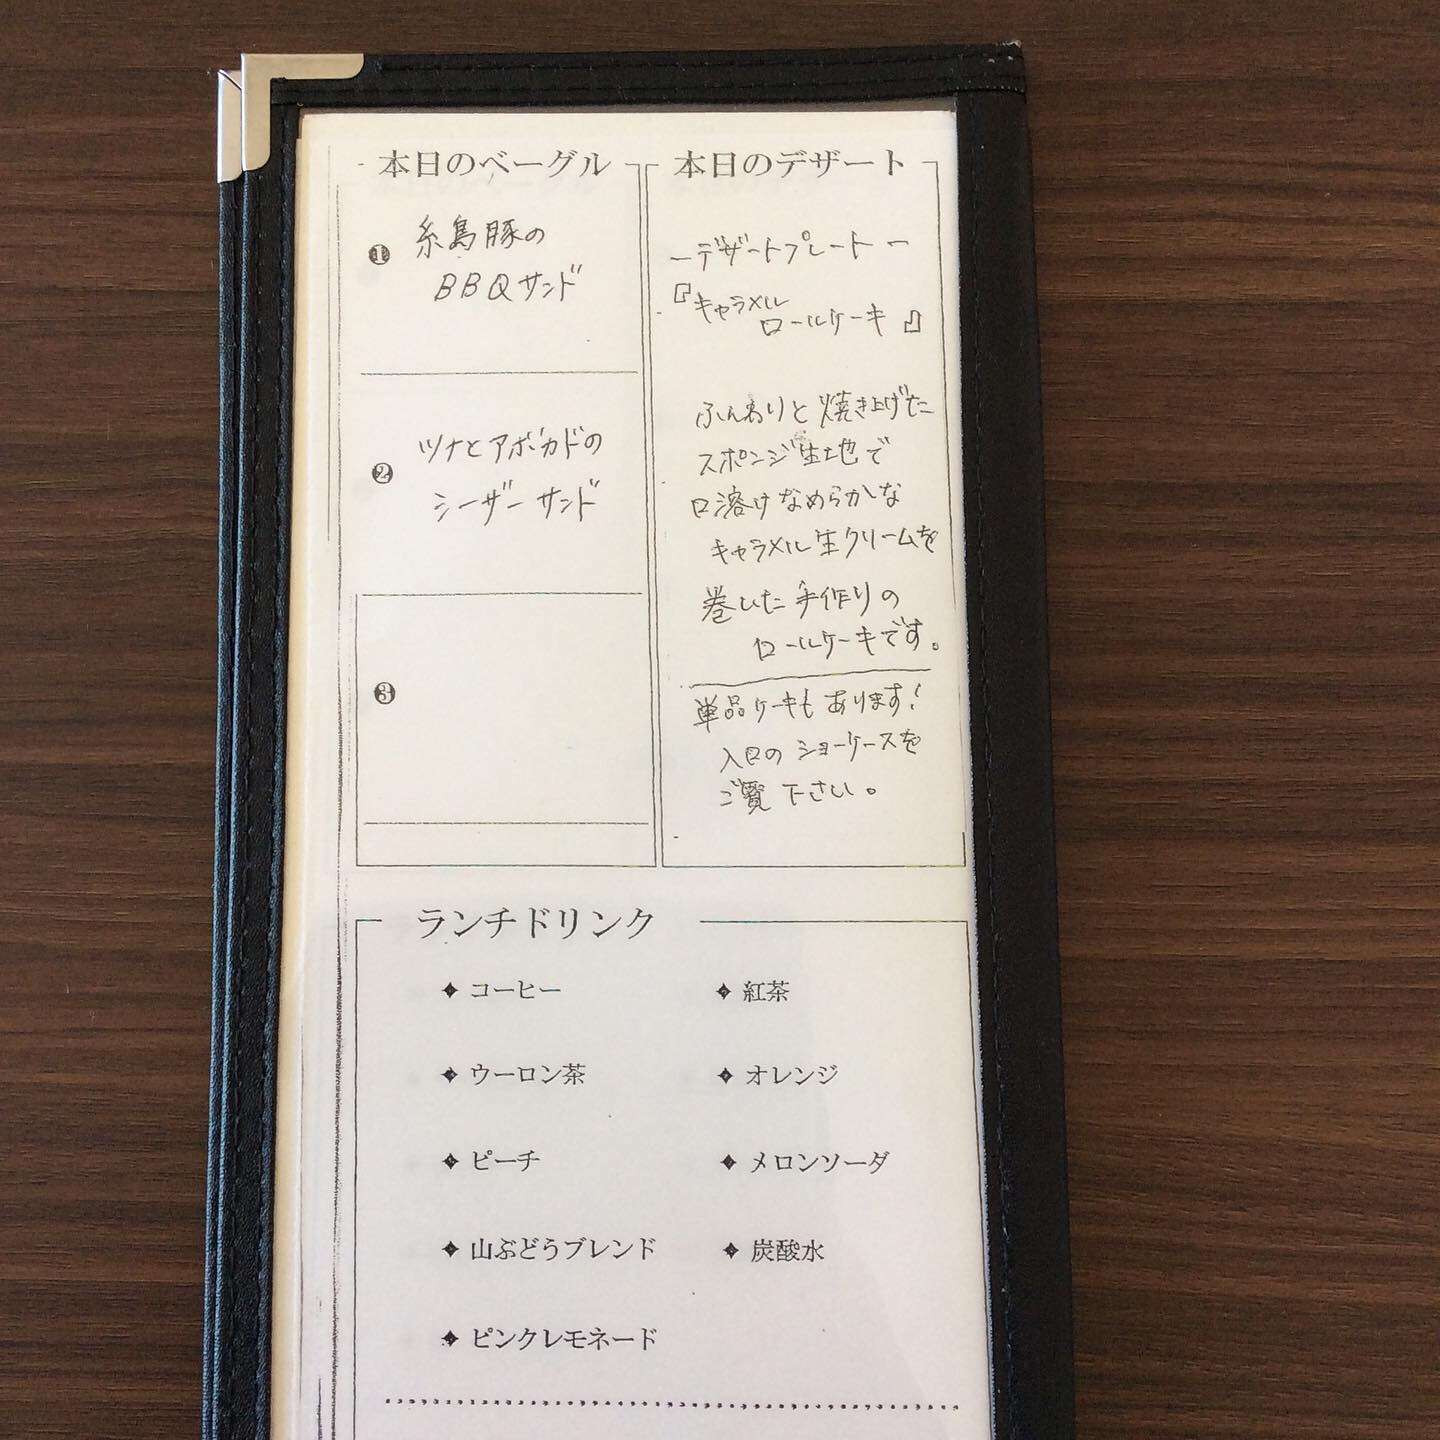 本日のベーグル
❶ 糸島豚の
BBQサンド
❷ ツナとアボカドの
シーザーサンド
❸
本日のデザート
ーデザートプレートー
『キャラメル
ロールケーキ』
ふんわりと焼き上げた
スポンジ生地で
口溶けなめらかな
キャラメル生クリームを
巻いた手作りの
ロールケーキです。
単品ケーキもあります!
入口のショーケースを
ご覧下さい。
ランチドリンク
コーヒー
紅茶
ウーロン茶
オレンジ
ピーチ
メロンソーダ
山ぶどうブレンド
炭酸水
ピンクレモネード